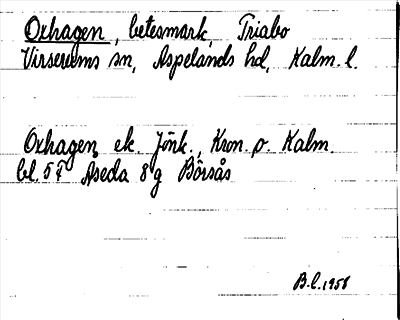 Oxhagen, betesmark, Triabo
Virserums sn, Aspelands hd, Kalm. l.
Oxhagen, ek. Jönk., Kron. o. Kalm.
bl. 57 Åseda 8 g Börsås
B.L. 1958